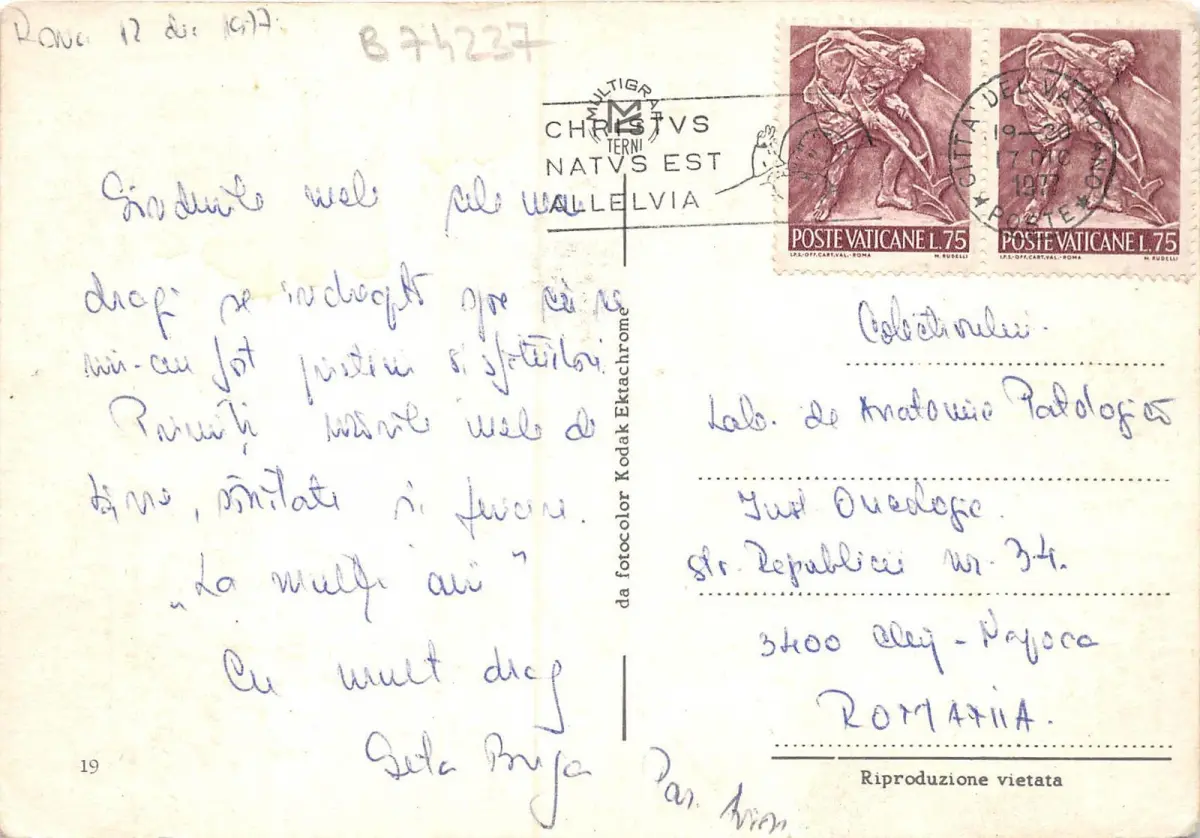 Roma 12 dec 1977.
B 74237
MULTIGRAF
TERNI
CHRISTVS
NATVS EST
ALLELVIA
CITTA' DEL VATICANO
19-20
17 DIC
1977
POSTE
POSTE VATICANE L.75
I.P.S.-OFF.CART.VAL.-ROMA M. RUDELLI
POSTE VATICANE L.75
I.P.S.-OFF.CART.VAL.-ROMA M. RUDELLI
Gîndurile mele cele mai
dragi se îndreaptă spre cei ce
mi-au fost prieteni și sfătuitori.
Primiți urările mele de
bine, sănătate și fericire.
„La mulți ani"
Cu mult drag
Geta
19
da fotocolor Kodak Ektachrome
Colectivului
Lab. de Anatomie Patologică
Inst Oncologic.
str. Republicii nr. 34.
3400 Cluj - Napoca
ROMANIA.
Riproduzione vietata
Par Avion